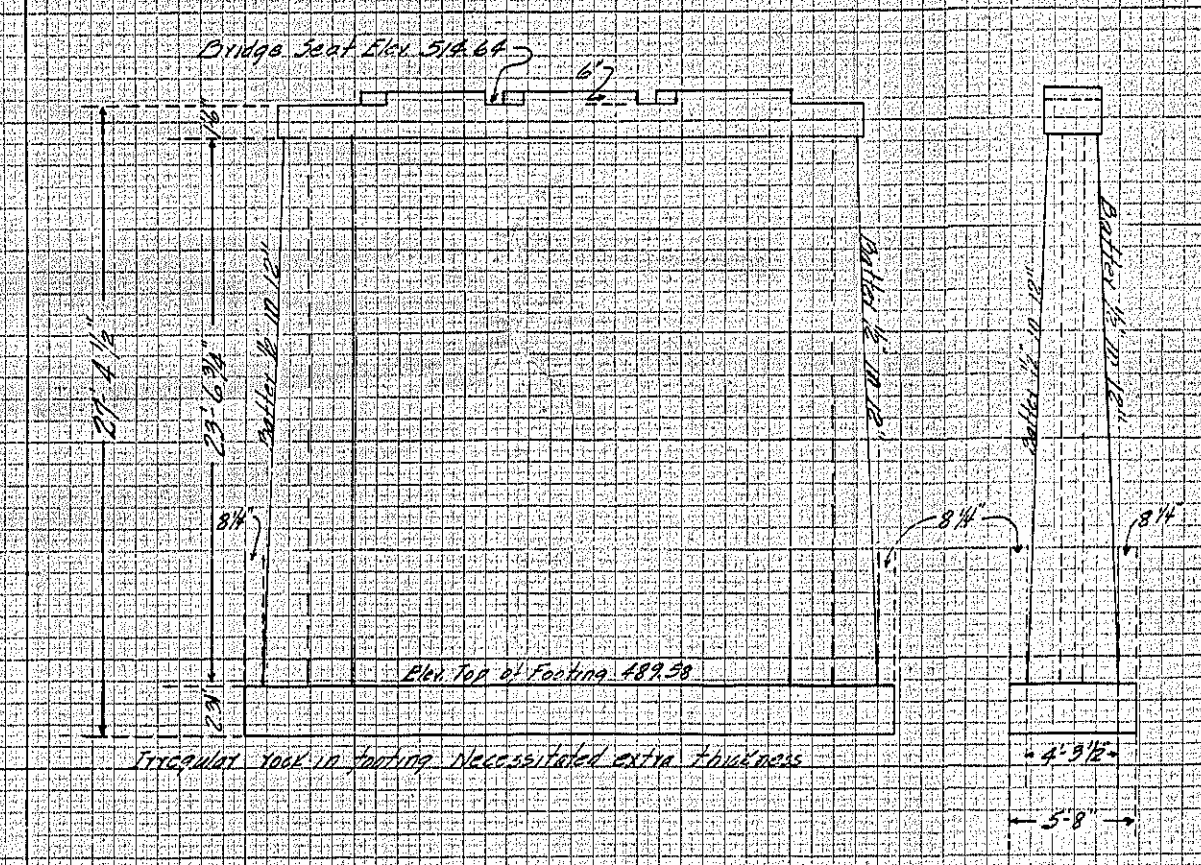 Bridge Seat Elev. 514.64
6"
1'-6"
27'-4 1/2"
23'-6 3/4"
Batter 1/2" in 12"
Batter 1/2" in 12"
Batter 1/2" in 12"
Batter 1/2" in 12"
8 1/4"
8 1/4"
8 1/4"
Elev. Top of Footing 489.58
2.31'
Irregular rock in footing Necessitated extra thickness
4'-3 1/2"
5'-8"